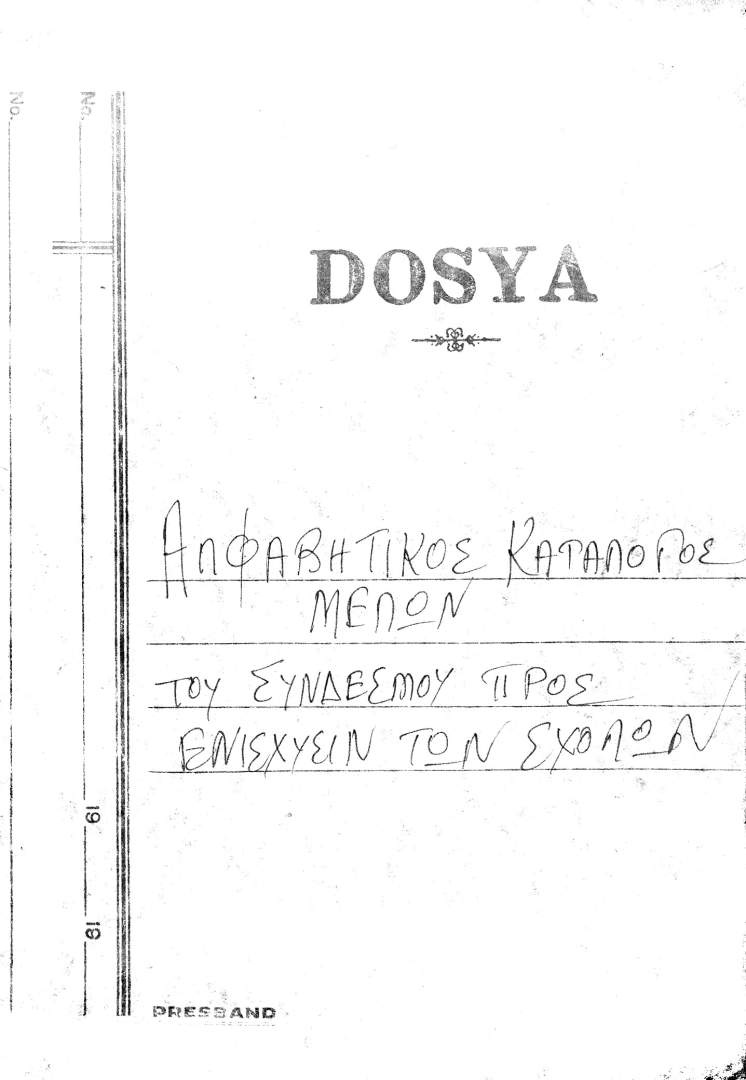 No.
No.
DOSYA
ΑΛΦΑΒΗΤΙΚΟΣ ΚΑΤΑΛΟΓΟΣ
ΜΕΛΩΝ
ΤΟΥ ΣΥΝΔΕΣΜΟΥ ΠΡΟΣ
ΕΝΙΣΧΥΣΙΝ ΤΩΝ ΣΧΟΛΩΝ
19
19
PRESBAND